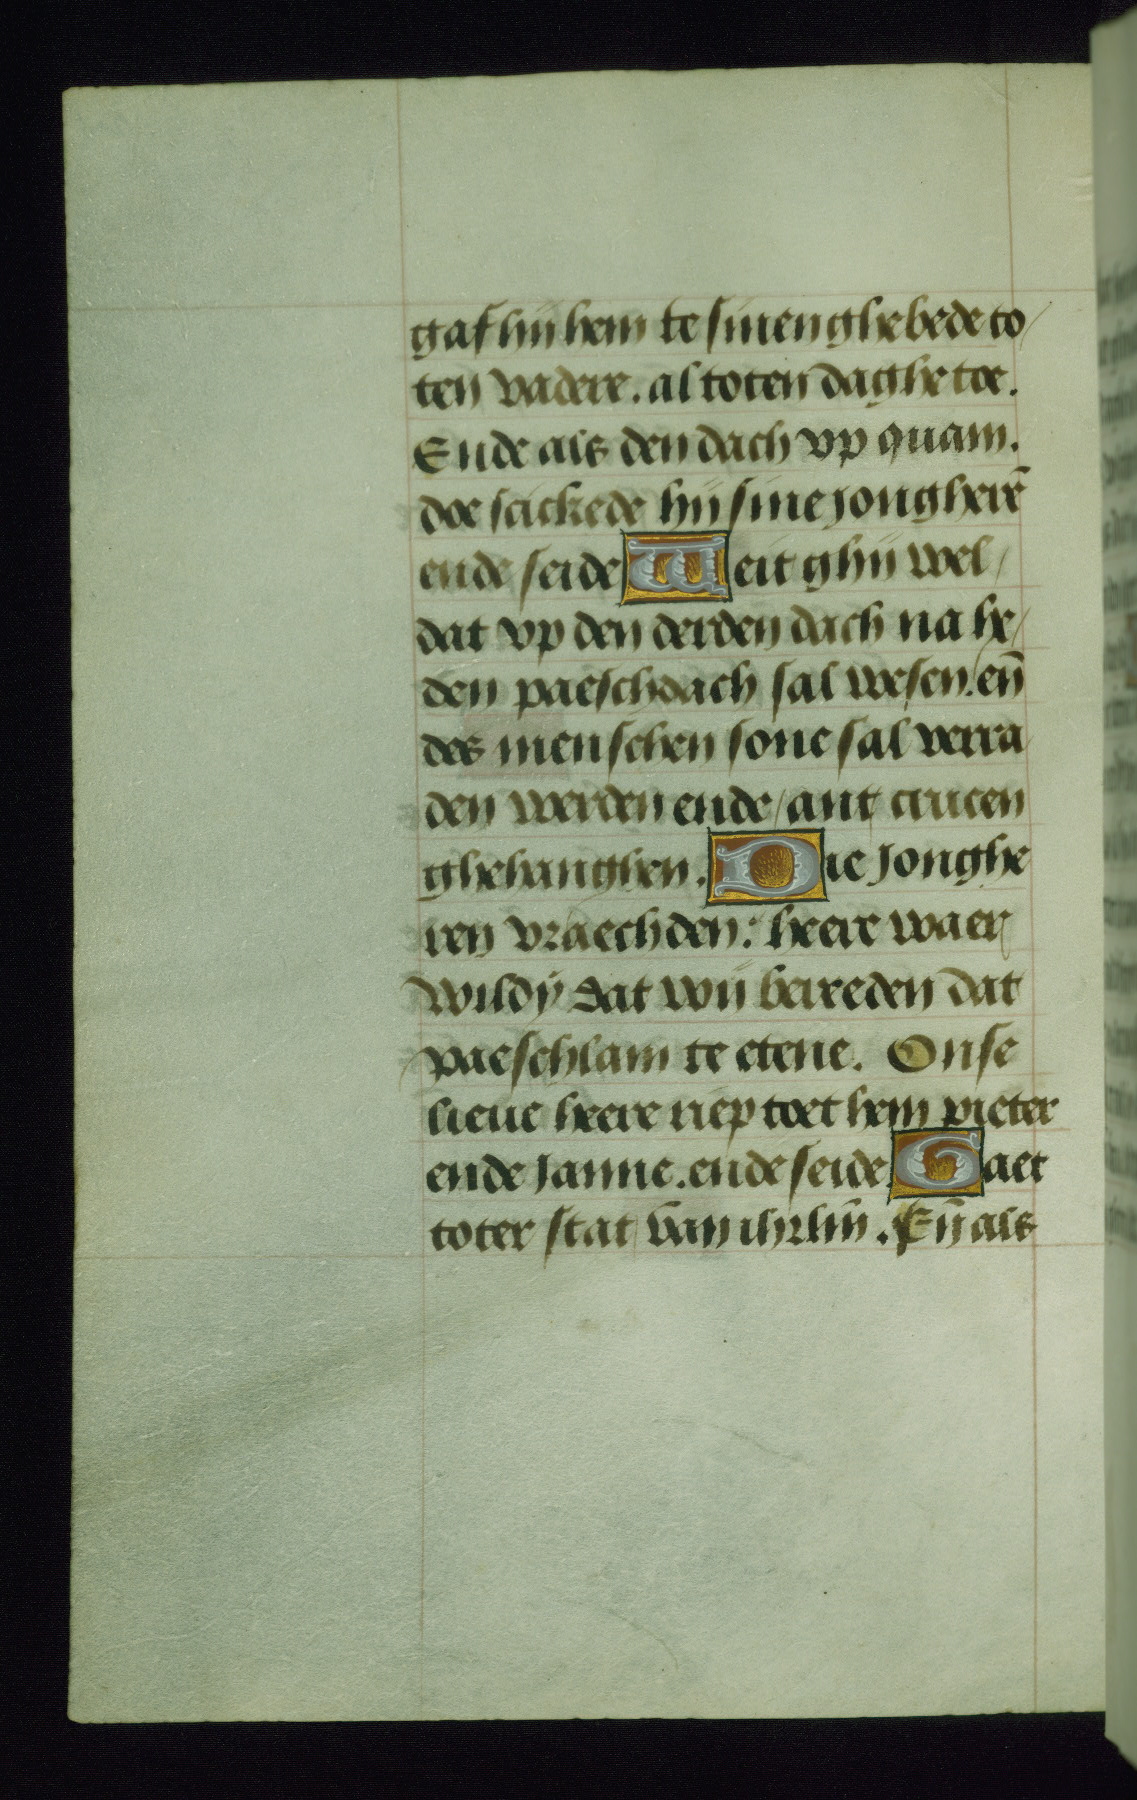 gaf hij hem te sinen ghebede to/
ten vadere. al toten daghe toe.
Ende als den dach vp quam.
doe scickede hij sine jongherē
ende seide Weit ghij wel/
dat vp den derden dach na he/
den paeschdach sal wesen. eñ
des menschen sone sal verra
den werden ende/ant crucen
ghehanghen. Die Jonghe
ren vraechden: heere waer
wildÿ dat wij bereeden dat
paeschlam te etene. Onse
lieue heere riep toet hem pieter
ende Janne. ende seide Gaet
toter stat van ihrlm̄. Eñ als